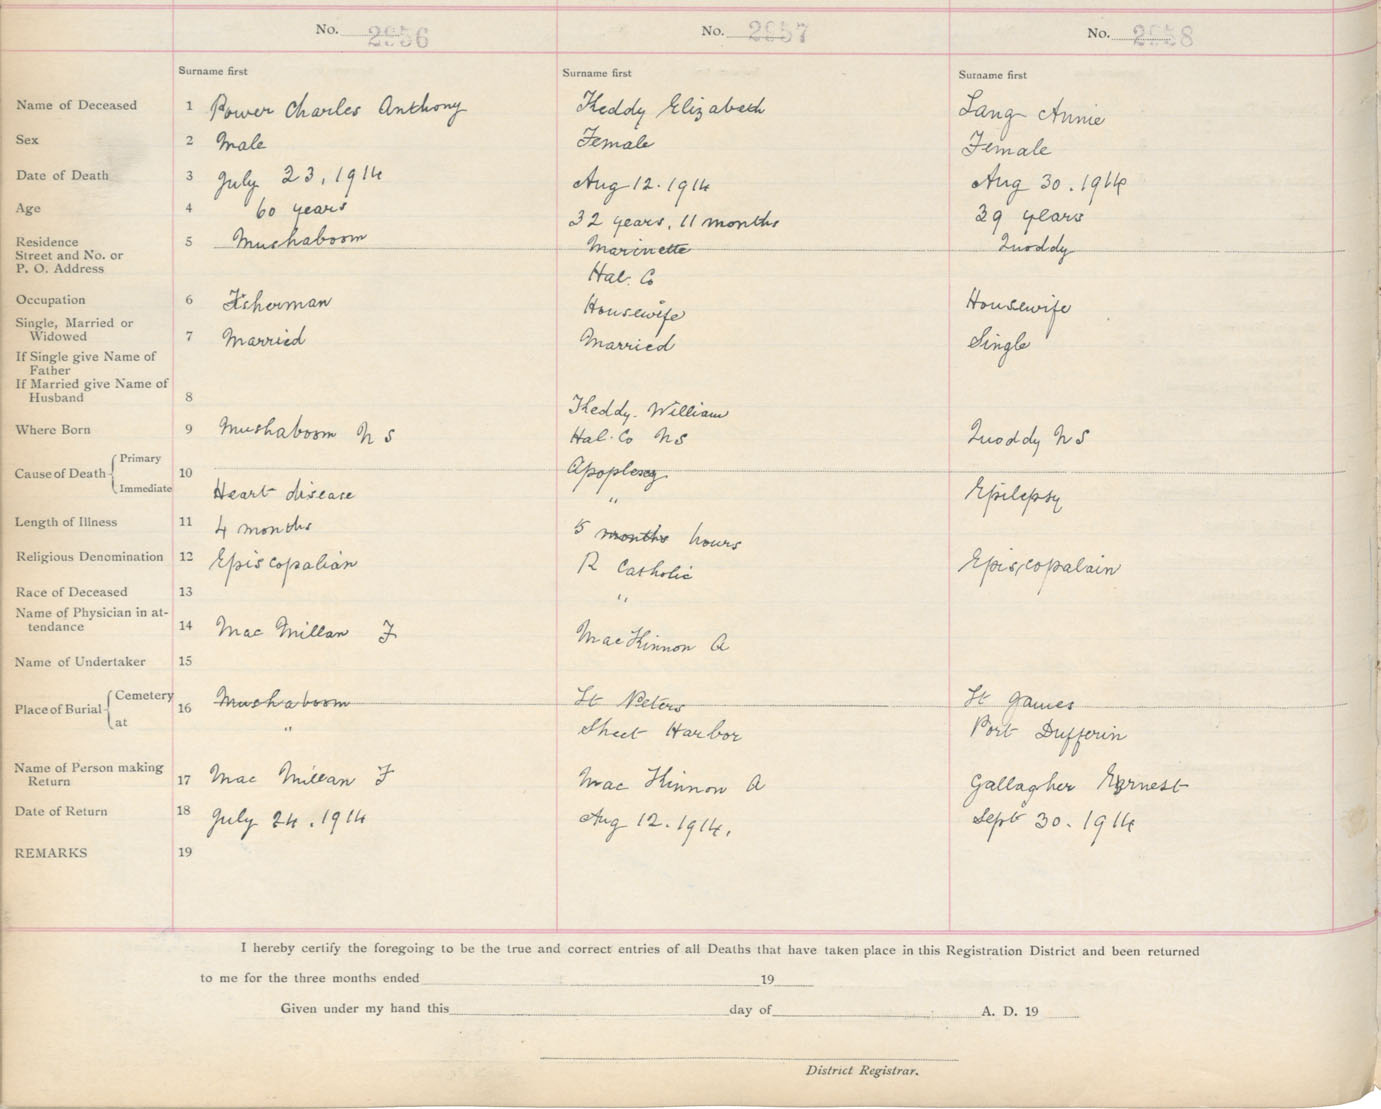 No. 2956 No. 2957 No. 2958
Surname first Surname first Surname first
Name of Deceased 1 Power Charles Anthony Keddy Elizabeth Lang Annie
Sex 2 Male Female Female
Date of Death 3 July 23, 1914 Aug 12. 1914 Aug 30. 1914
Age 4 60 years 32 years, 11 months 39 years
Residence 5 Mushaboom Marinette Quoddy
Street and No. or
P. O. Address Hal. Co
Occupation 6 Fisherman Housewife Housewife
Single, Married or
Widowed 7 Married Married Single
If Single give Name of
Father
If Married give Name of
Husband 8 Keddy. William
Where Born 9 Mushaboom N S Hal. Co NS Quoddy NS
Cause of Death Primary 10 Apoplexy
Immediate Heart disease " Epilepsy
Length of Illness 11 4 months 5 months hours
Religious Denomination 12 Episcopalian R Catholic Episcopalain
Race of Deceased 13 "
Name of Physician in at-
tendance 14 Mac Millan F MacKinnon A
Name of Undertaker 15
Place of Burial Cemetery 16 Mushaboom St Peters St James
at " Sheet Harbor Port Dufferin
Name of Person making
Return 17 Mac Millan F Mac Kinnon A Gallagher Ernest
Date of Return 18 July 24. 1914 Aug 12. 1914. Sept 30. 1914
REMARKS 19
I hereby certify the foregoing to be the true and correct entries of all Deaths that have taken place in this Registration District and been returned
to me for the three months ended 19
Given under my hand this day of A. D. 19
District Registrar.